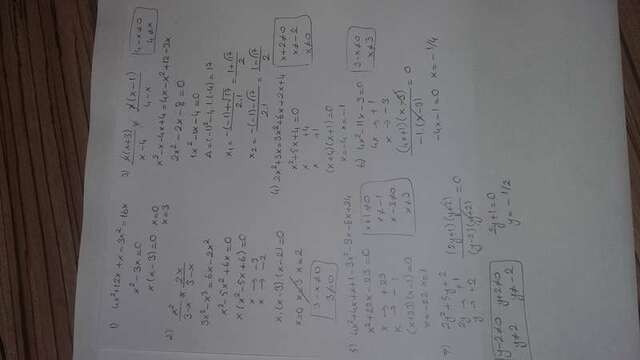 1) 4x²+12x+x-3x²=16x
x²-3x=0
x(x-3)=0 x=0
x=3
2) x²/3-x × 2x/3-x
3x²-x³=6x-2x²
x³-5x²+6x=0
x(x²-5x+6)=0
x → -3
x → -2
x.(x-3).(x-2)=0
x=0 x=3 x=2
3-x≠0
3≠0
3) x(x+3)/x-4 x(x-1)/4-x
4-x≠0
4≠x
x²-x-4x+4=4x-x²+12-3x
2x²-2x-8=0
1x²-1x-4=0
Δ=(-1)²-4.1.(-4)=17
x₁=-(-1)+√17/2.1=1+√17/2
x₂=-(-1)-√17/2.1=1-√17/2
4) 2x²+3x=3x²+6x+2x+4
x²+5x+4=0
x +4
x +1
(x+4)(x+1)=0
x=-4 x=-1
x+2≠0
x≠-2
x≠0
5) 4x²+4x+x+1-3x²-3x-6x+24
x²+22x-23=0
x → +23
x → -1
(x+23)(x-1)=0
x=-22 x=1
x+1≠0
x≠-1
x-3≠0
x≠3
6) 4x²-11x-3=0
4x → +1
x → -3
(4x+1)(x-3)/-1.(x-3)=0
-4x-1=0 x=-1/4
3-x≠0
x≠3
7) 2y²+5y+2
2y → +1
y → +2
(2y+1)(y+2)/(y-2)(y+2)=0
2y+1=0
y=-1/2
y-2≠0 y+2≠0
y≠2 y≠-2